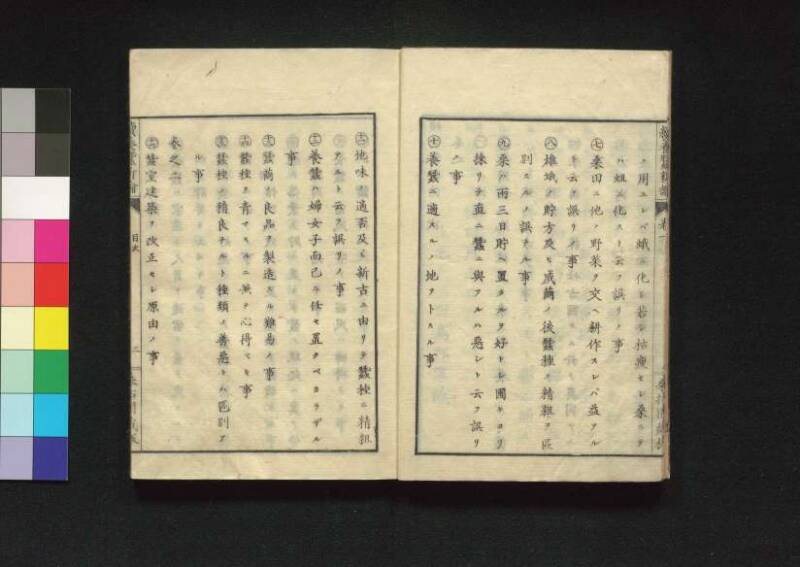 ノ用ユレバ蛾ニ化シ若シ枯瘦セシ桑ニテ
ハ蛆ニ化スト云フ誤リノ事
七 桑田ニ他ノ野菜ヲ交ヘ耕作スレバ益アル
云フ誤リノ事
八 雄蛾ノ貯方及ビ成繭ノ後蠶種ノ精粗ヲ區
別スルノ誤ナル事
九 桑ハ両三日貯ヘ置タルヲ好トシ圃ヨリ
採リテ直ニ蠶ニ與フルハ惡シト云フ誤リ
ノ事
十 養蠶ニ適スルノ地ヲトスル事
地味ノ適否及ビ新古ニ由リテ蠶種ニ精粗
アルト云フ誤リノ事
養蠶ハ婦女子而已ニ任セ置クベカラザル
事
蠶繭ノ良品ヲ製造スル難易ノ事
蠶種ヲ青マスルニ無クテ心得ベキ事
蠶種ノ精良ナルト種類ノ善惡トハ區別ア
ル事
卷之二
蠶室建築ヲ改正セシ原由ノ事
目次
卷一